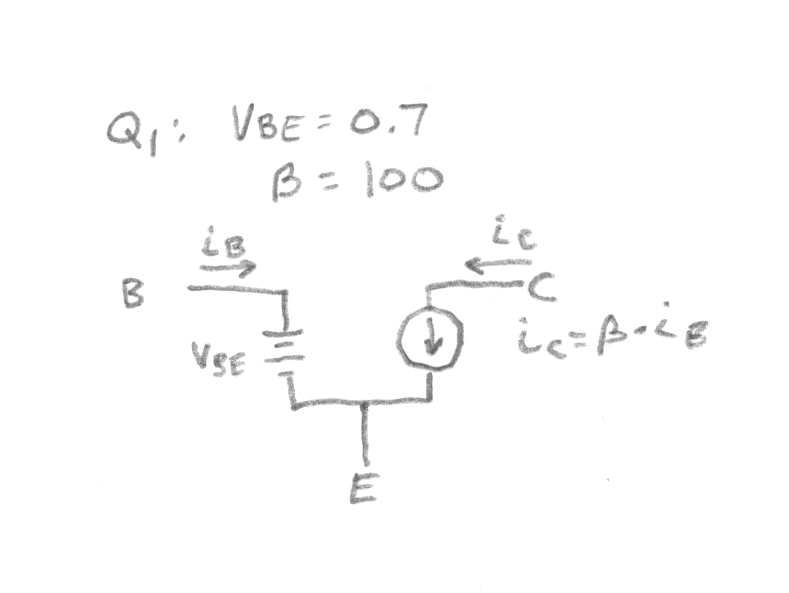 Q1: VBE = 0.7
β = 100
iB
iC
B
C
VBE
iC = β · iB
E